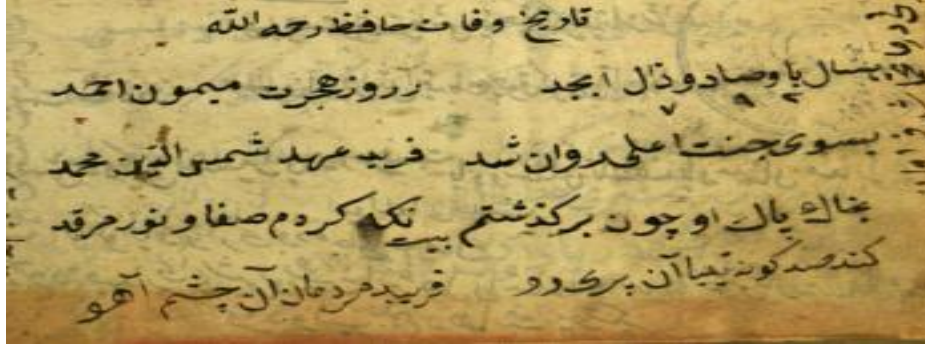 تاریخ وفات حافظ رحمه الله
بسال با و صاد و ذال ابجد ز روز هجرت میمون احمد
۷ ۹ ۲
بسوی جنت اعلی روان شد فرید عهد شمس الدین محمد
بخاك پاك او چون برکذشتم نکه کردم صفا و نور مرقد
بیت
کند صد کونه آن پری رو فریب مردمان آن چشم آهو